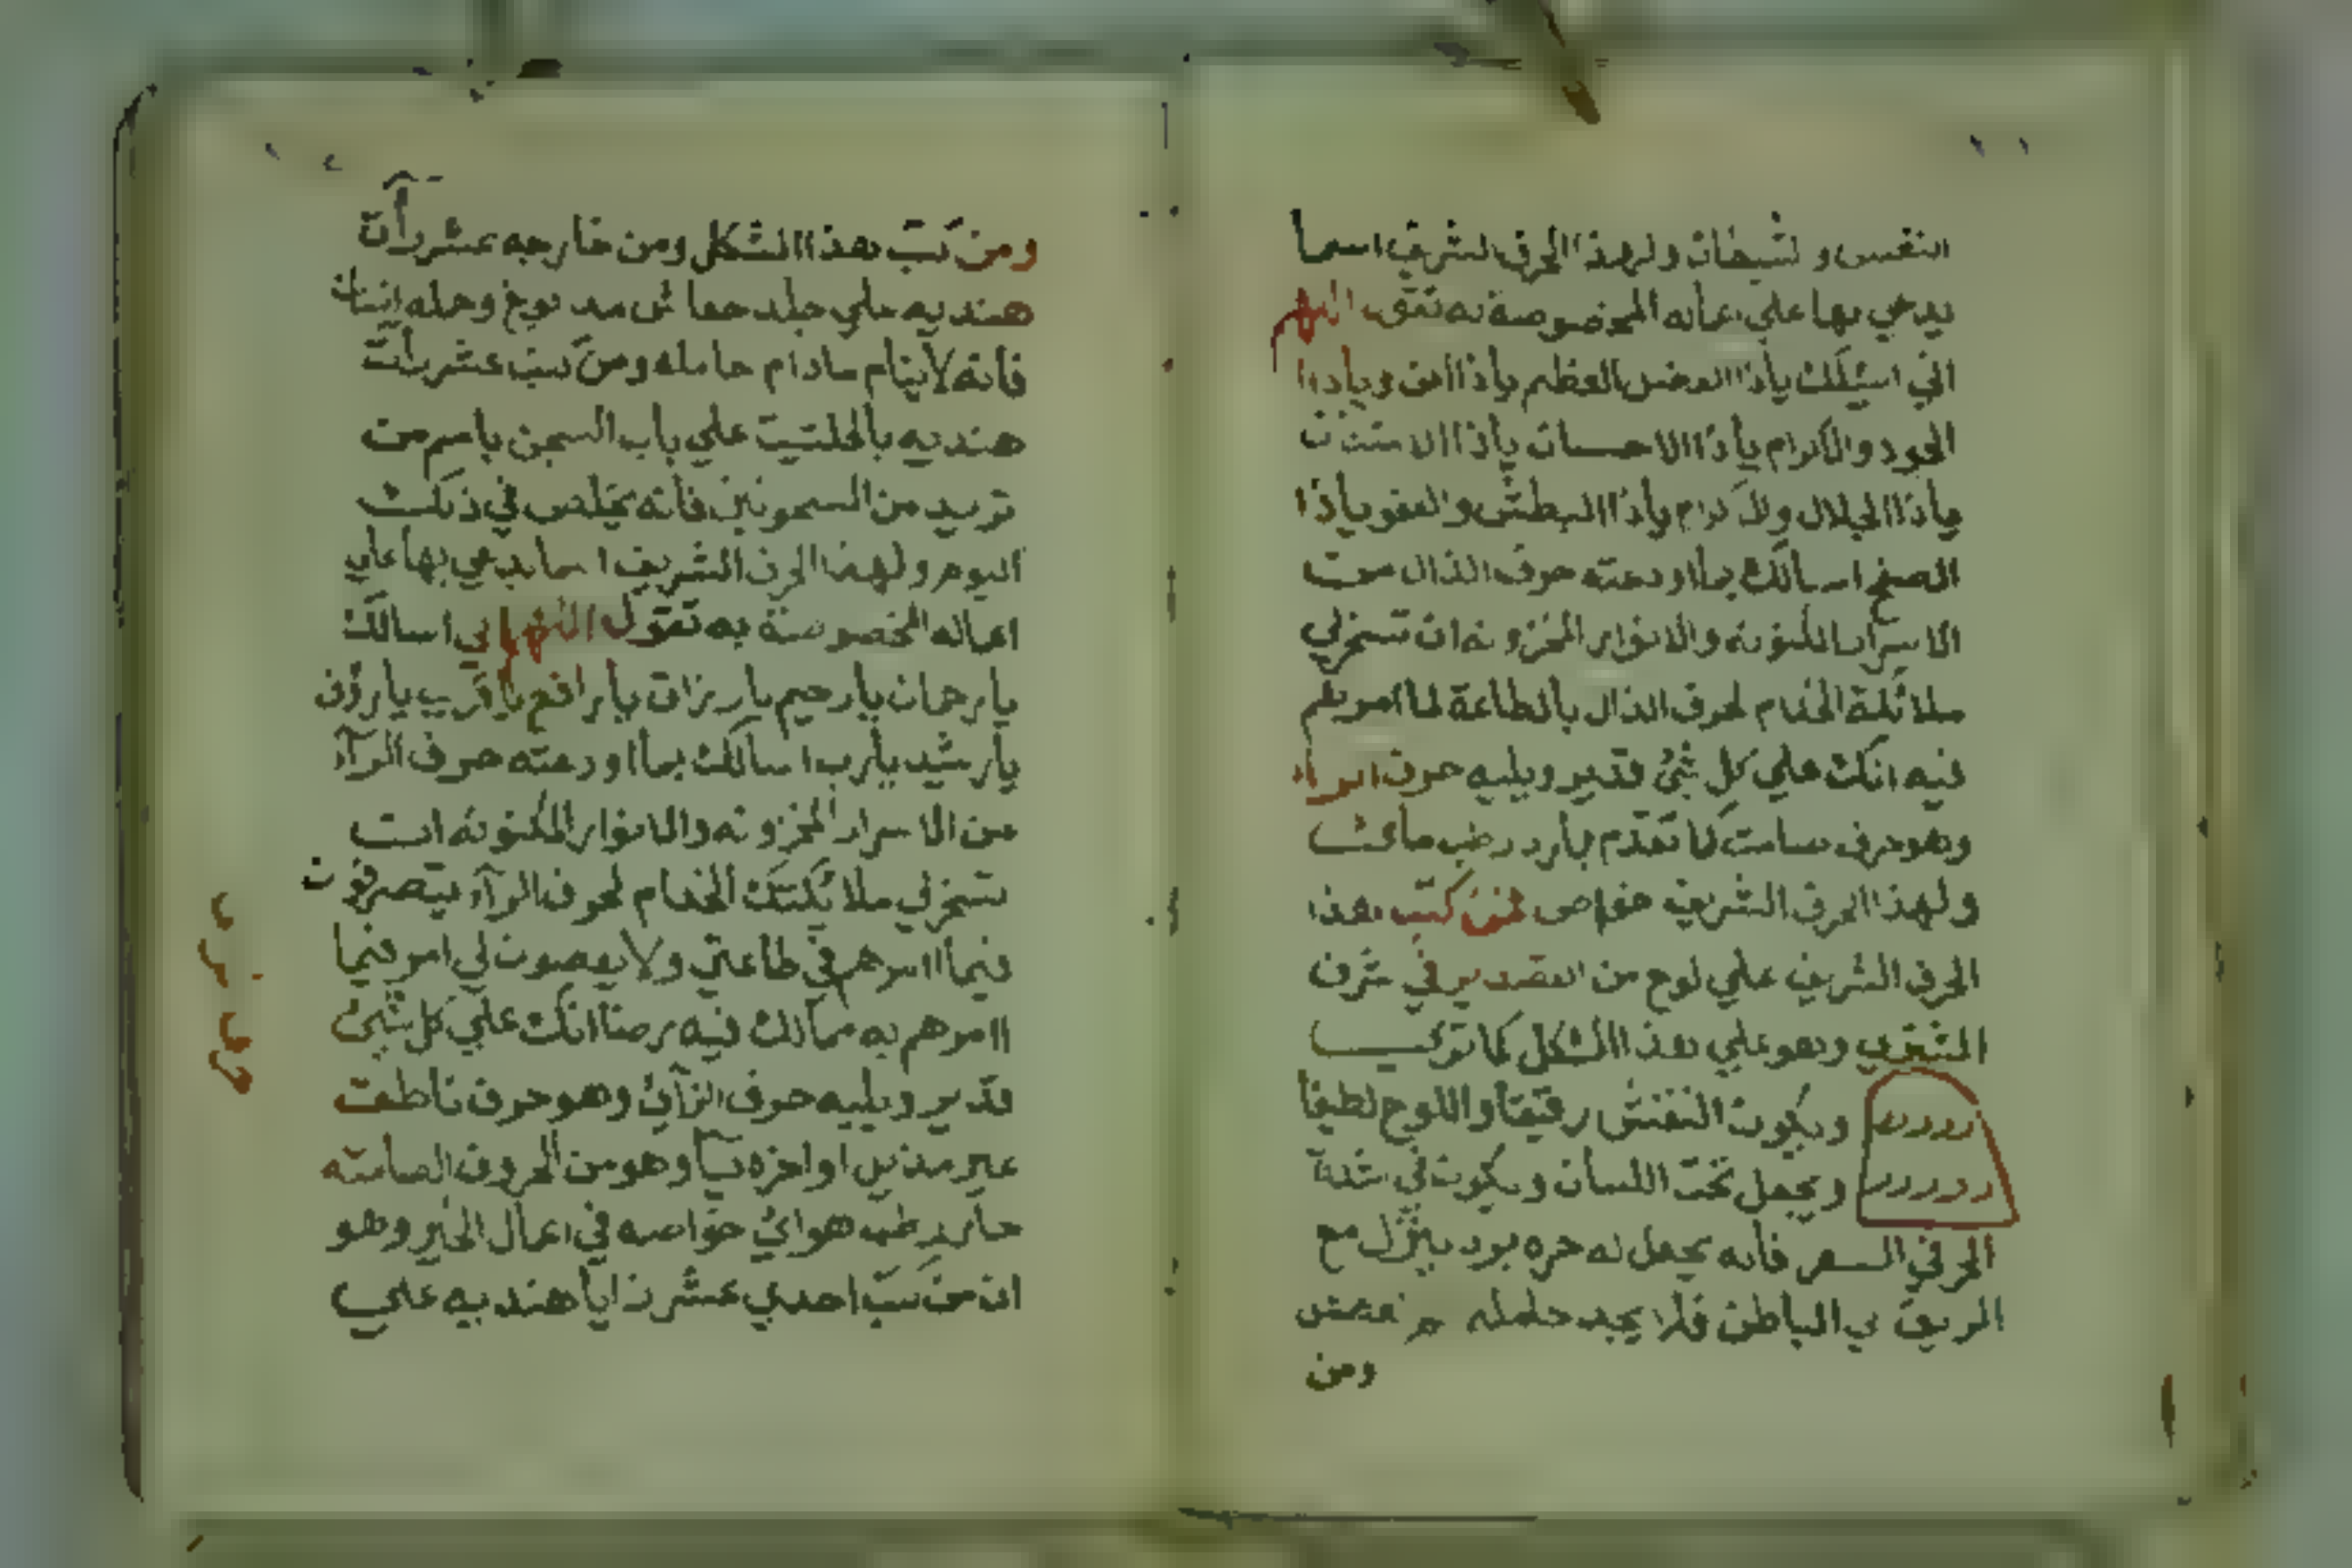 النفس والشيطان ولهذا الحرف الشريف اسما
يدعي بها علي اعماله المخصوصة به تقول اللهم
اني اسئلك ياذا الفضل العظيم ياذا المن وياذا
الجود والاكرام ياذا الاحسان ياذا الامتنان
ياذا الجلال والاكرام ياذا البطش والعفو ياذا
الصفح اسالك بما اودعته حرف الذال من
الاسرار المكنونه والانوار المخزونه ان تسخرلي
ملائكة الخدام لحرف الذال بالطاعة لما امرتهم
فيه انك علي كل شئ قدير ويليه حرف الراء
وهو حرف صامت كما تقدم بارد رطب مائي
ولهذا الحرف الشريف خواص فمن كتب هذا
الحرف الشريف علي لوح من القصدير في شرف
المشتري وهو علي هذا الشكل كما تري
ويكون النقش رقيقا واللوح لطيفا
رررررر
ويجعل تحت اللسان ويكون في شدة
رررررر
الحر في السفر فانه يجعل له خره برد ينزل مع
الريق الي الباطن فلا يجد حامله عطش
ومن
ومن كتب هذا الشكل ومن خارجه عشر راآت
هنديه علي جلد خفاش مدبوغ وحمله انسان
فانه لاينام مادام حامله ومن كتب عشر راآت
هنديه بالحلتيت علي باب السجن باسم من
تريد من المسجونين فانه يخلص في ذلك
اليوم ولهذا الحرف الشريف اسما يدعي بها علي
اعماله المخصوصة به تقول اللهم اني اسالك
يارحمان يارحيم يارزاق يارافع ياقريب يارؤف
يارشيد يارب اسالك بما اودعته حرف الرآء
من الاسرار المخزونه والانوار المكنونه ان
تسخرلي ملائكتك الخدام لحرف الرآء يتصرفون
فيما امرهم في طاعتي ولا يعصون لي امر فيما
اامرهم به ممالك فيه رضا انك علي كل شئ
قدير ويليه حرف الزاي وهو حرف ناطق
غير منزل اواخره يآ وهو من الحروف الصامته
حار رطب هوائي خواصه في اعمال الخير وهو
ان من كتب احدي عشر زايا هنديه علي